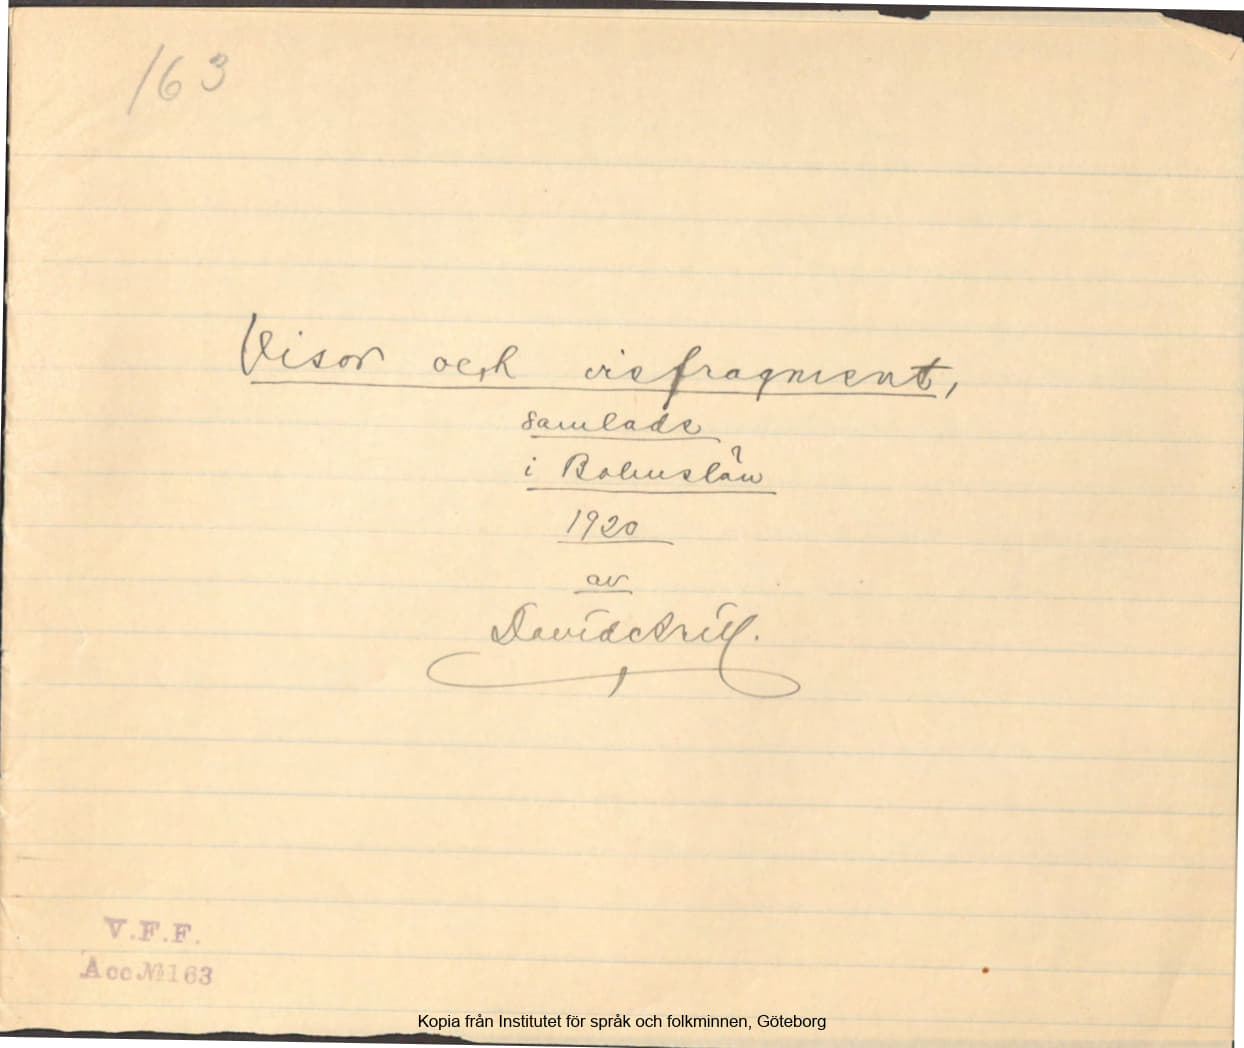 163
Visor och visfragment,
samlade
i Bohuslän
1920
av
David Arill.
V.F.F.
Acc № 163
Kopia från Institutet för språk och folkminnen, Göteborg